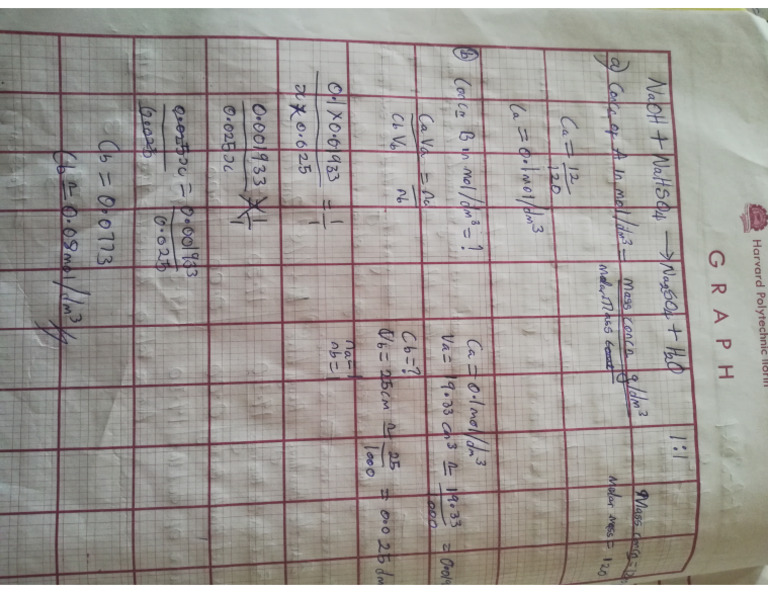 Harvard Polytechnic Ilorin
GRAPH
NaOH + NaHSO4 → Na2SO4 + H2O 1:1
a) Concn of A in mol/dm³ = mass concn g/dm³
molar mass
Mass concn =
Molar mass = 120
Ca = 12
120
Ca = 0.1 mol/dm³
b) Concn B in mol/dm³ = ?
CaVa = na
CbVb nb
Ca = 0.1 mol/dm³
Va = 19.33 cm³ = 19.33
1000
Cb = ?
Vb = 25cm = 25 = 0.025dm
1000
na = 1
nb = 1
0.1 × 0.01933 = 1
x × 0.025 1
0.001933 1
0.025x 1
0.025x = 0.001933
0.025 0.025
Cb = 0.0773
Cb = 0.08mol/dm³//